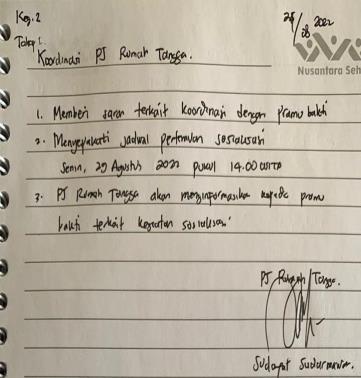 Keg. 2
25/08 2022
Tahap 1.
Koordinasi PJ Rumah Tangga.
Nusantara Seh
1. Memberi saran terkait koordinasi dengan pramu bakti
2. Menyepakati jadwal pertemuan sosialisasi
Senin, 29 Agustus 2022 pukul 14.00 WITA
3. PJ Rumah Tangga akan menginformasikan kepada pramu
bakti terkait kegiatan sosialisasi
PJ Rumah Tangga.
Sudarmawan.